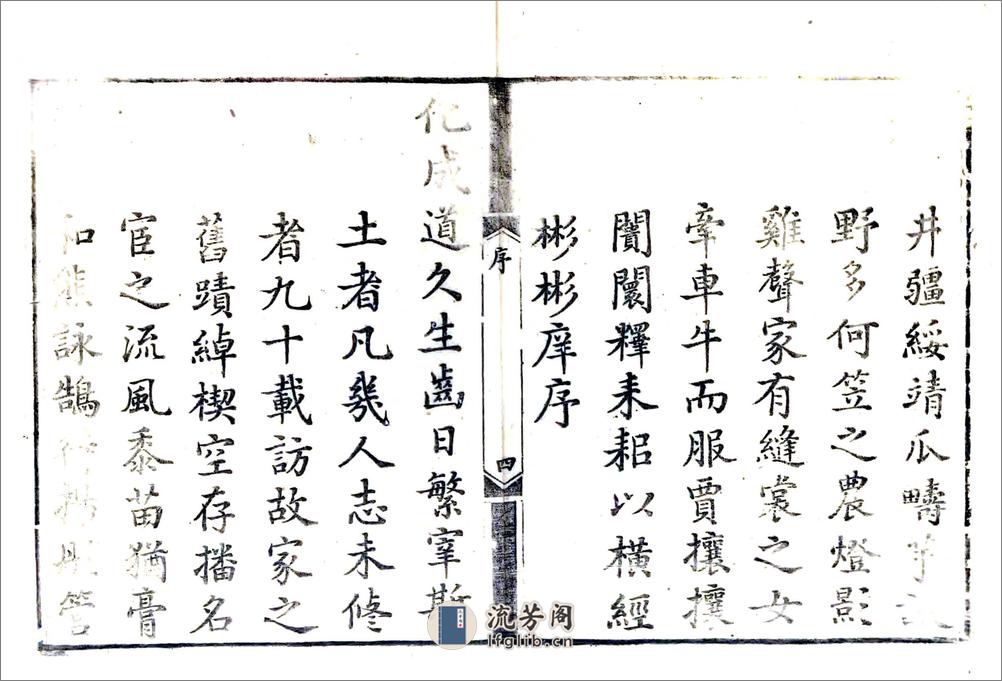 井疆綏靖瓜疇芋
野多何笠之農燈影
雞聲家有縫裳之女
牽車牛而服賈攘攘
闤闠釋耒耜以橫經
彬彬庠序
序
四
化成道久生齒日繁宰斯
土者凡幾人志未修
者九十載訪故家之
舊蹟綽楔空存播名
宦之流風黍苗猶膏
和熊詠鵠
流芳阁
lfglib.cn